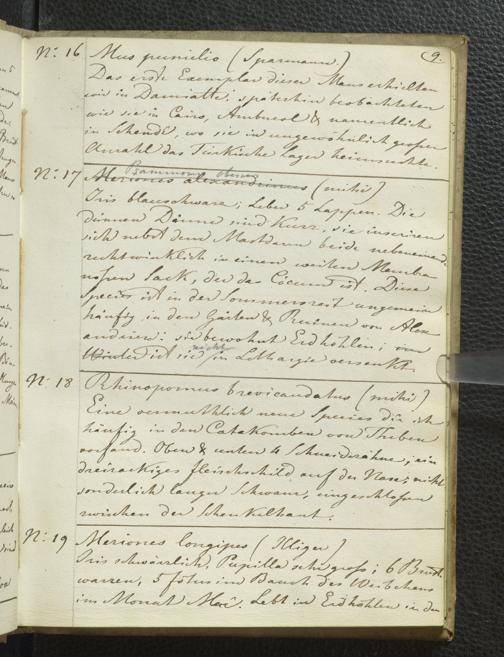 9.
No: 16 Mus pumilio (Sparmann.)
Das erste Exemplar dieser Maus erhielten
wir in Damiatte; späterhin beobachteten
wir sie in Cairo, Ambucol & namentlich
in Schendi, wo sie in ungewöhnlich großer
Anzahl das Türkische Lager heimsuchte.
No: 17 Meriones alexandrinus (mihi)
Iris blauschwarz; Leber 5 Lappen. Die
dünnen Därme sind kurz, sie inseriren
sich nebst dem Mastdarm beide nebeneinand.
rechtwinklich in einen weiten Membra-
nosen Sack, der das Coecum ist. Diese
Species ist in der Sommerszeit ungemein
häufig in den Gärten & Ruinen von Alex-
andrien: sie bewohnt Erdhöhlen; im
Winter ist sie nicht in Lethargie versenkt.
No: 18 Rhinopomus brevicaudatus (mihi)
Eine vermuthlich neue Species die ich
häufig in den Catakomben von Theben
vorfand. Oben & unten 4 Schneidezähne; ein
dreieckiges Fleischschild auf der Nase; nicht
sonderlich langer Schwanz, eingeschlossen
zwischen der Schenkelhaut.
No: 19 Meriones longipes (Illiger)
Iris schwärzlich, Pupilla sehr gross; 6 Brust-
warzen, 5 fötus im Bauch des Weibchens
im Monat Mai. Lebt in Erdhöhlen in den